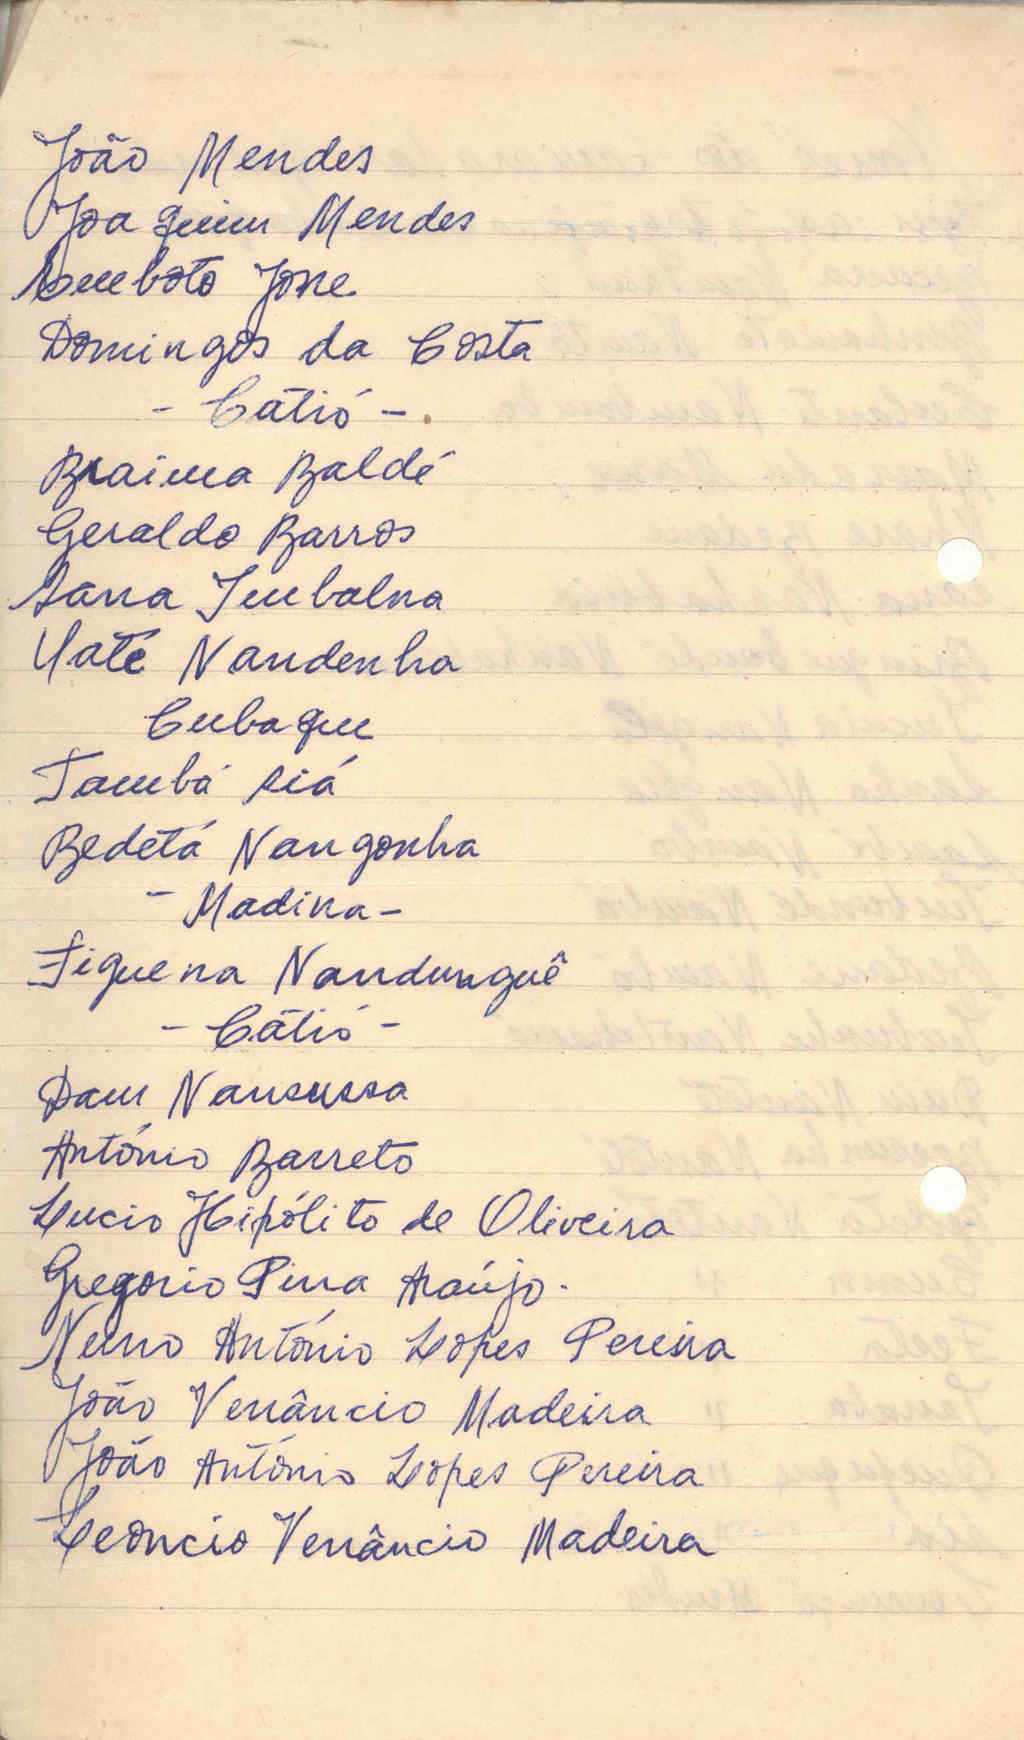 João Mendes
Joaquim Mendes
Jose
Domingos da Costa
- Cátió -
Braima Baldé
Geraldo Barros
Sana Imbalna
Uaté Nandenha
Cubaque
Tambá Siá
Bedetá Nangonha
- Madina -
Figuena Nandunguê
- Cátió -
Dam Nansussa
António Barreto
Lucio Hipólito de Oliveira
Gregorio Pina Araújo.
Nuno António Lopes Pereira
João Venâncio Madeira
João António Lopes Pereira
Leoncio Venâncio Madeira